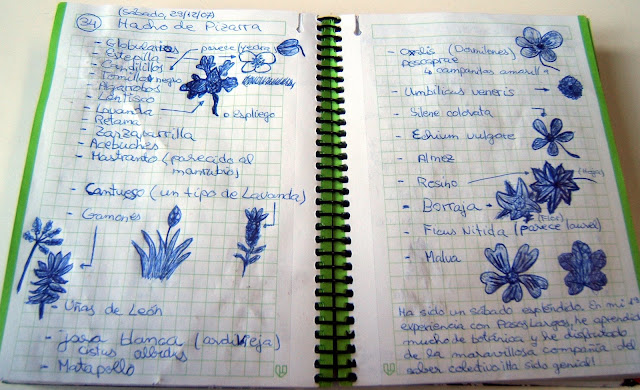 (Sábado, 29/12/07)
34 Hacho de Pizarra
- Globularios
- Estepilla
- Candilillos
parece (yedra)
- Tomillo negro
- Algarrobos
- Lentisco
- Lavanda
o Espliego
- Retama
- Zarzaparrilla
- Acebuches
- Mastranto (parecido al
marrubio)
- Cantueso (un tipo de Lavanda)
- Gamones
- Uñas de León
- jara blanca (ardivieja)
cistus albidus
- Matapollo
- Oxalis (Dormilones)
pescaprae
campanitas amarill
- Umbilicus veneris
- Silene colorata
- Echium vulgare
- Almez
- Rosino
- Borraja
(Flor)
- Ficus Nitida (parece laurel)
- Malva
Ha sido un sábado espléndido. En mi 1ª
experiencia con Pasos Largos, he aprendido
mucho de botánica y he disfrutado
de la maravillosa compañía del
saber colectivo. ¡Ha sido genial!